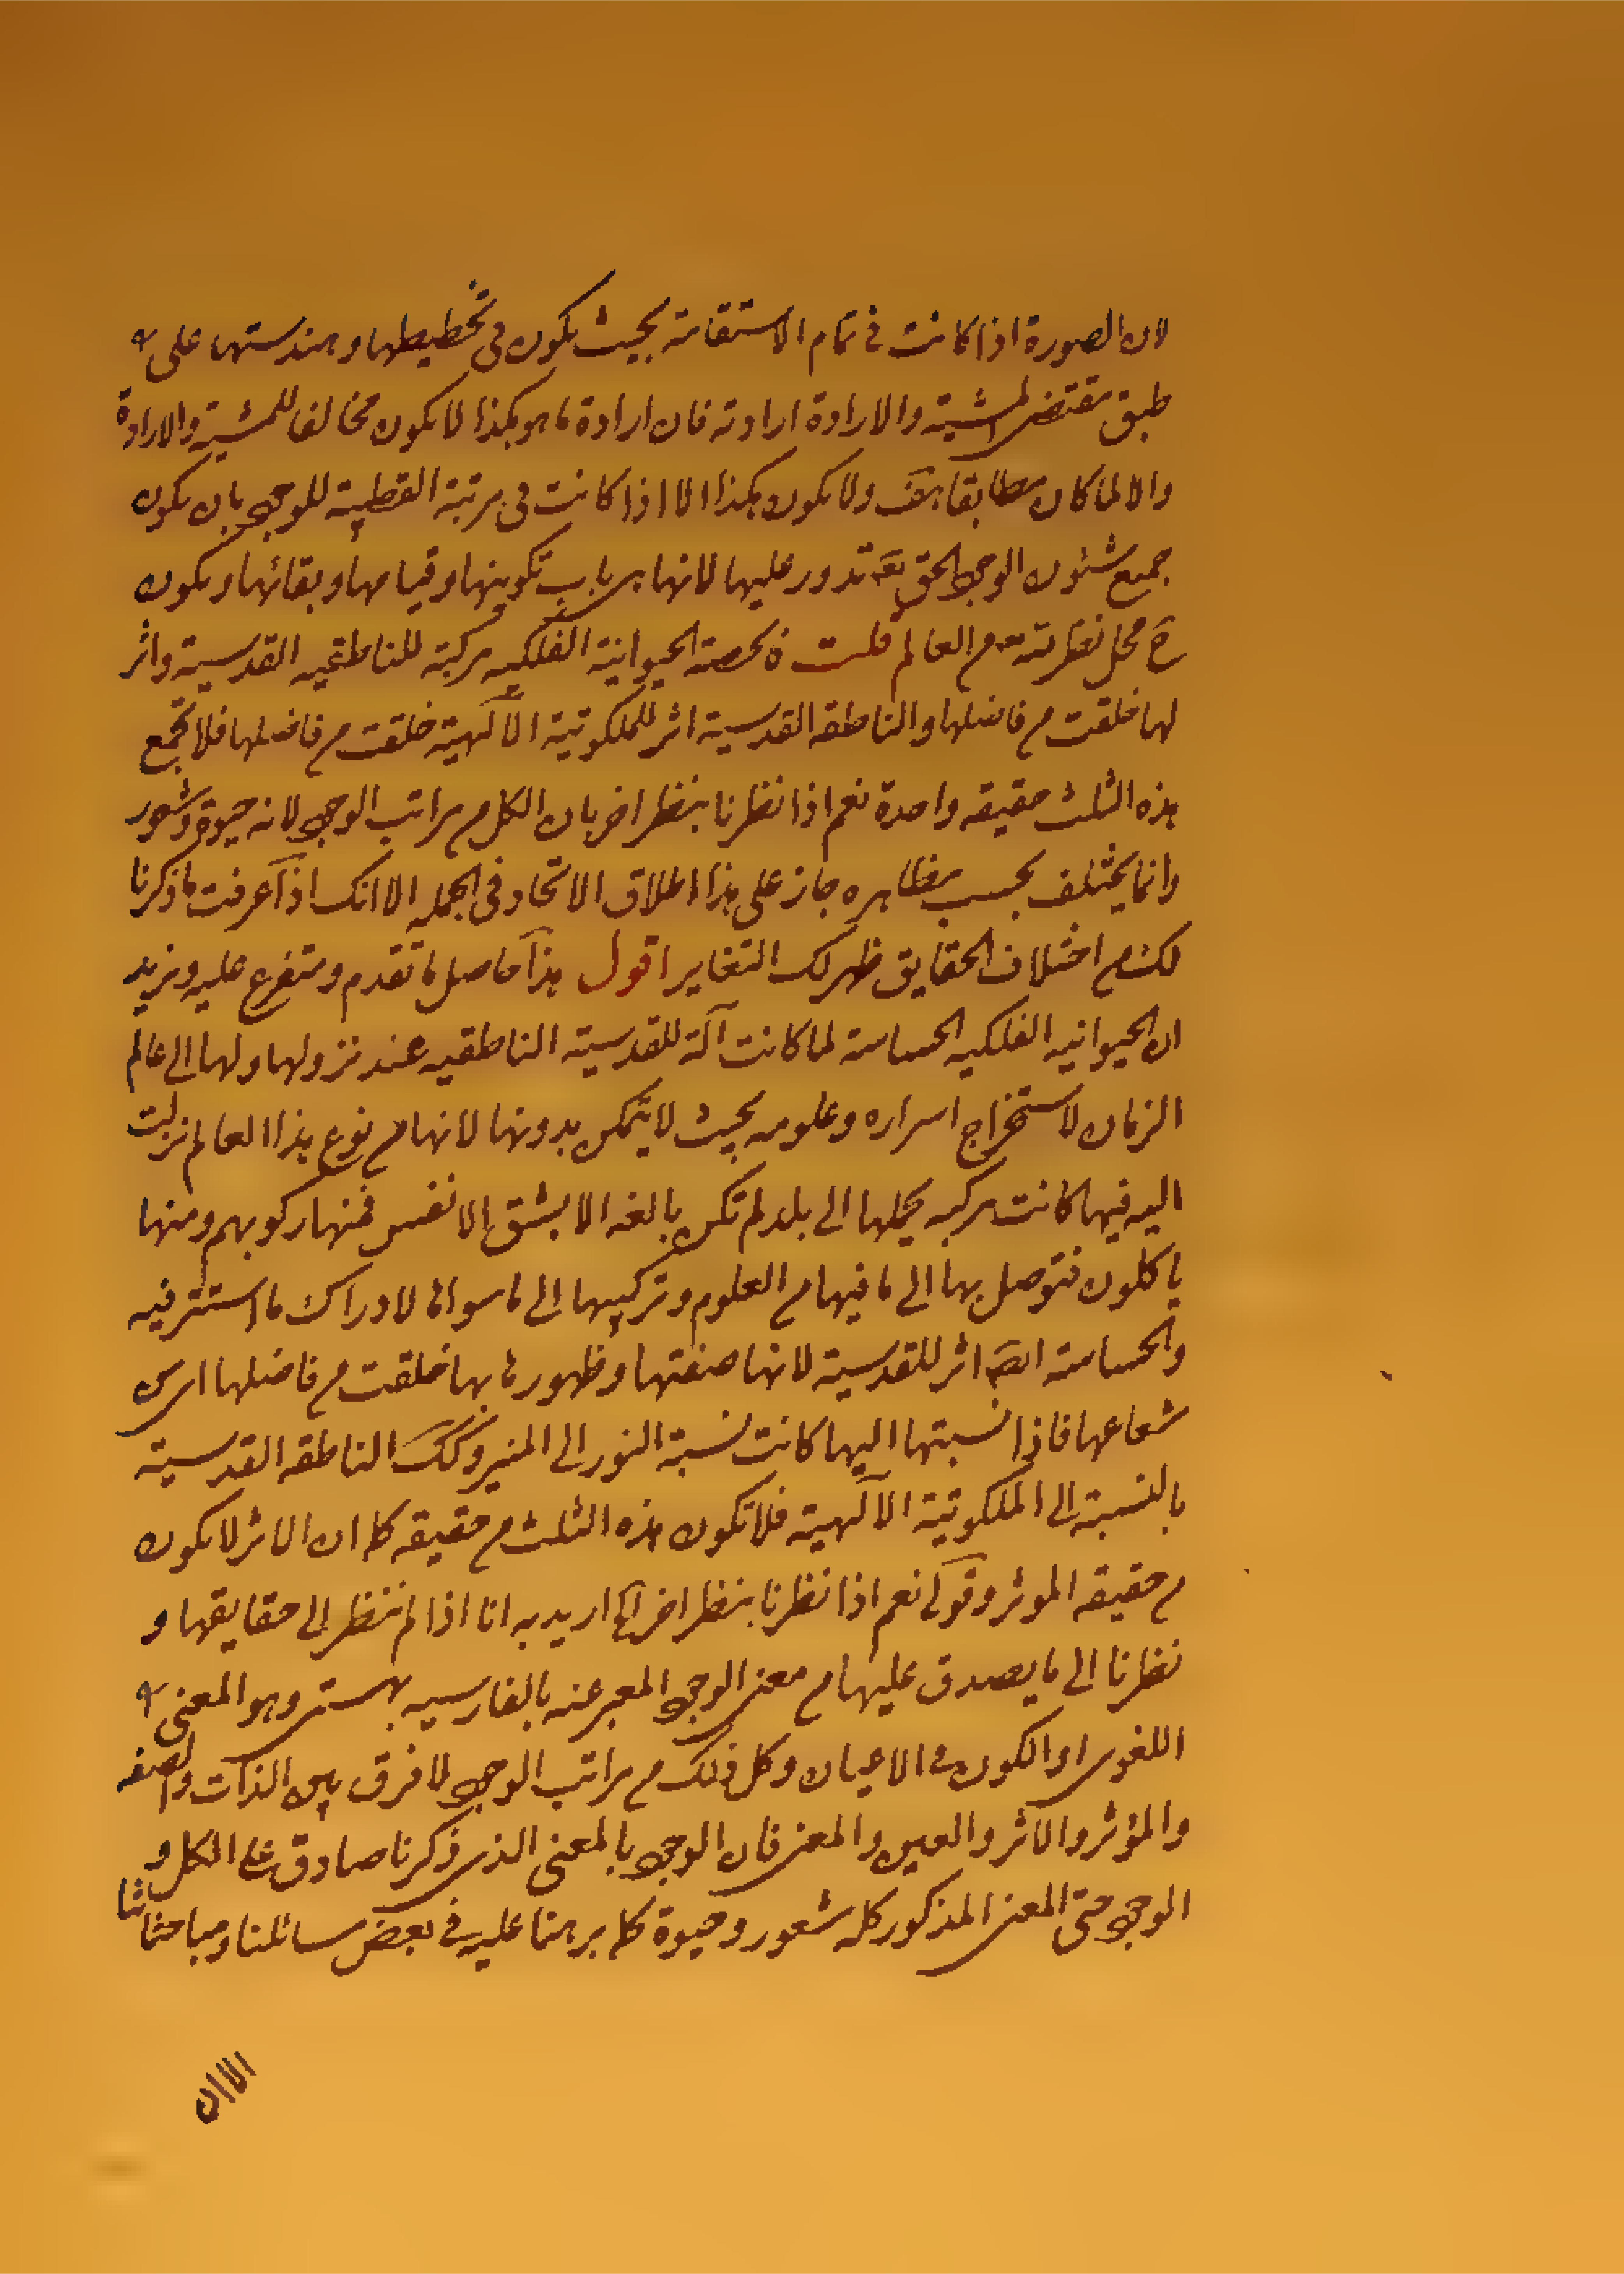 لان الصورة اذا كانت فى تمام الاستقامة بحيث يكون فى تخطيطها و هندستها على
طبق مقتضى المشية والارادة ارادته فان ارادة ما هو هكذا لا يكون مخالفا للمشية والارادة
والا لما كان مطابقا هف ولا يكون هكذا الا اذا كانت فى مرتبة القطبية للوجود بان يكون
جميع شئون الوجود الحق تدور عليها لانها هى باب تكوينها وقيامها وبقائها ويكون
ح محل نظره من العالم قلت فالحصة الحيوانية الفلكيه مركبة للناطقيه القدسية واثر
لها خلقت من فاضلها والناطقه القدسية اثر للملكوتية الآلهية خلقت من فاضلها فلا تجمع
هذه الثلث حقيقه واحدة نعم اذا نظرنا بنظر اخر بان الكل من مراتب الوجود لانه حيوة وشعور
وانما يختلف بحسب مظاهره جاز على هذا اطلاق الاتحاد فى الجمله الا انك اذا عرفت ما ذكرنا
لك من اختلاف الحقايق ظهر لك التغاير اقول هذا حاصل ما تقدم ومتفرع عليه ونريد
ان الحيوانيه الفلكيه الحساسة لما كانت آلة للقدسية الناطقيه عند نزولها ولها الى عالم
الزمان لاستخراج اسراره وعلومه بحيث لا يتمكن بدونها لانها من نوع هذا العالم نزلت
اليه فيها كانت مركبه يحملها الى بلد لم تكن بالغه الا بشق الانفس فمنها ركوبهم ومنها
ياكلون فتوصل بها الى ما فيها من العلوم وتركيبها الى ما سواها لادراك ما استتر فيه
والحساسة ايضا اثر للقدسية لانها صفتها وظهورها بها خلقت من فاضلها اى من
شعاعها فاذا نسبتها اليها كانت نسبة النور الى المنير وكك الناطقه القدسية
بالنسبة الى الملكوتية الآلهية فلا تكون هذه الثلث من حقيقه كما ان الاثر لا يكون
من حقيقه الموثر وقولى نعم اذا نظرنا بنظر اخر الخ اريد به انا اذا لم ننظر الى حقايقها و
نظرنا الى ما يصدق عليها من معنى الوجود المعبر عنه بالفارسيه بهستى وهو المعنى
اللغوى او الكون فى الاعيان وكل ذلك من مراتب الوجود لا فرق بين الذات والصفه
والمؤثر والاثر والعين والمعنى فان الوجود بالمعنى الذى ذكرنا صادق على الكل و
الوجود حتى المعنى المذكور كله شعور وحيوة كما برهنا عليه فى بعض رسائلنا ومباحثاتنا
الا ان